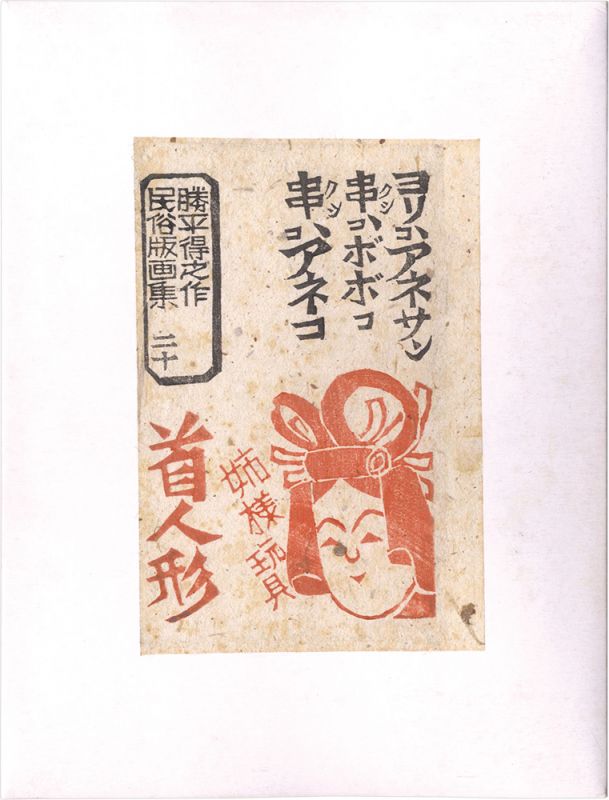 ヨリコ、アネサン
串コ、ボボコ
クシ
串コ、アネコ
クシ
勝平得之作
民俗版画集 二十
姉様玩具
首人形